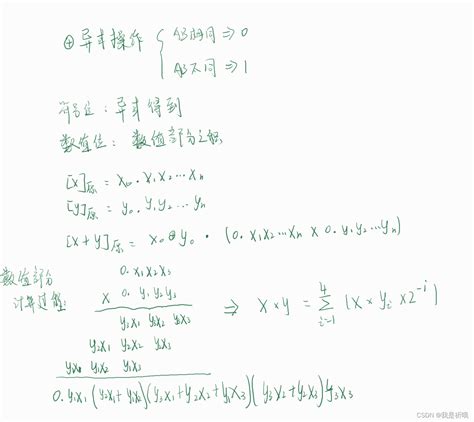 ⊕异或操作 { AB相同 ⇒ 0
AB不同 ⇒ 1
符号位：异或得到
数值位：数值部分之积
[x]原 = x₀.x₁x₂…xₙ
[y]原 = y₀.y₁y₂…yₙ
[x+y]原 = x₀⊕y₀.(0.x₁x₂…xₙ x 0.y₁y₂…yₙ)
数值部分
计算过程:
0.x₁x₂x₃
x 0.y₁y₂y₃
⇒ x×y = Σ⁴ᵢ₌₁(x×yᵢ×2⁻ⁱ)
y₃x₁ y₃x₂ y₃x₃
y₂x₁ y₂x₂ y₂x₃
y₁x₁ y₁x₂ y₁x₃
0.y₁x₁(y₂x₁+y₁x₂)(y₃x₁+y₂x₂+y₁x₃)(y₃x₂+y₂x₃)y₃x₃
CSDN @我是祈哦